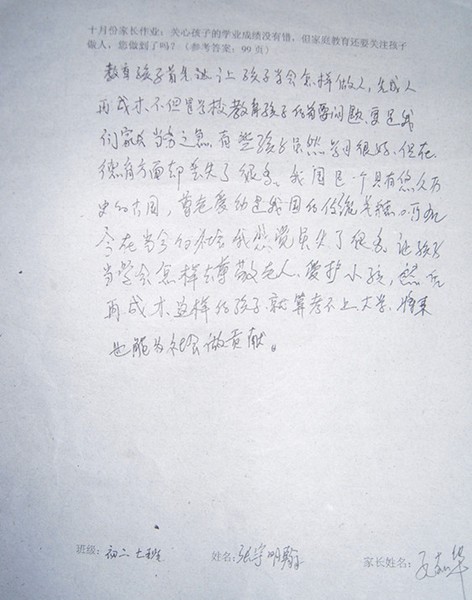 十月份家长作业：关心孩子的学业成绩没有错，但家庭教育还要关注孩子
做人，您做到了吗？（参考答案：99页）
教育孩子首先让孩子学会怎样做人，先成人
再成才不但是学校教育孩子的首要问题，更是我
们家长当务之急，有些孩子虽然学习很好，但在
德育方面却丢失了很多。我国是一个具有悠久历
史的古国，尊老爱幼是我国的传统美德。可如
今在当今的社会我感觉丢失了很多，让孩子
当学会怎样去尊敬老人、爱护小孩，然后
再成才这样的孩子就算考不上大学，将来
也能为社会做贡献。
班级：初二七班 姓名：张宇明翰 家长姓名：